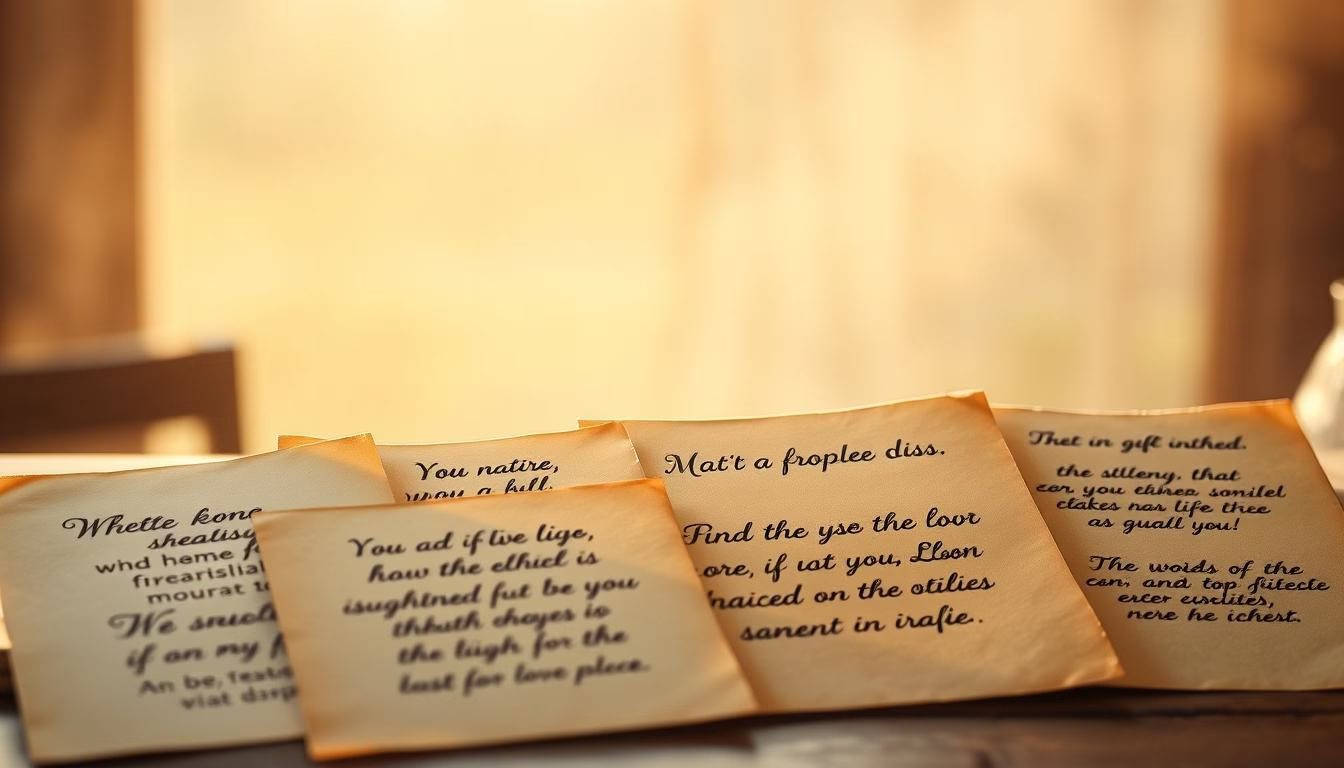 Whette kone
shealisy
whd heme f
firearislial
mourat t
We snuoll
if on my f
An be, feate
viat darp
You natire,
wvoy a hill.
You ad if live lige,
how the elhiel is
isughtned fut be you
thkuth choyes io
the lüigh for the
last for love plece.
Mat't a froplee diss.
Find the yse the loor
ore, if uat you, Lloon
naiced on the otilies
sanent in irafie..
Thet in gift inthed.
the stlleny, that
eor you ehinea sonilel
clakes nas life thee
as guall you!
The woids of the
can, and top fiitecle
erter eustlites,
nere he ichest.